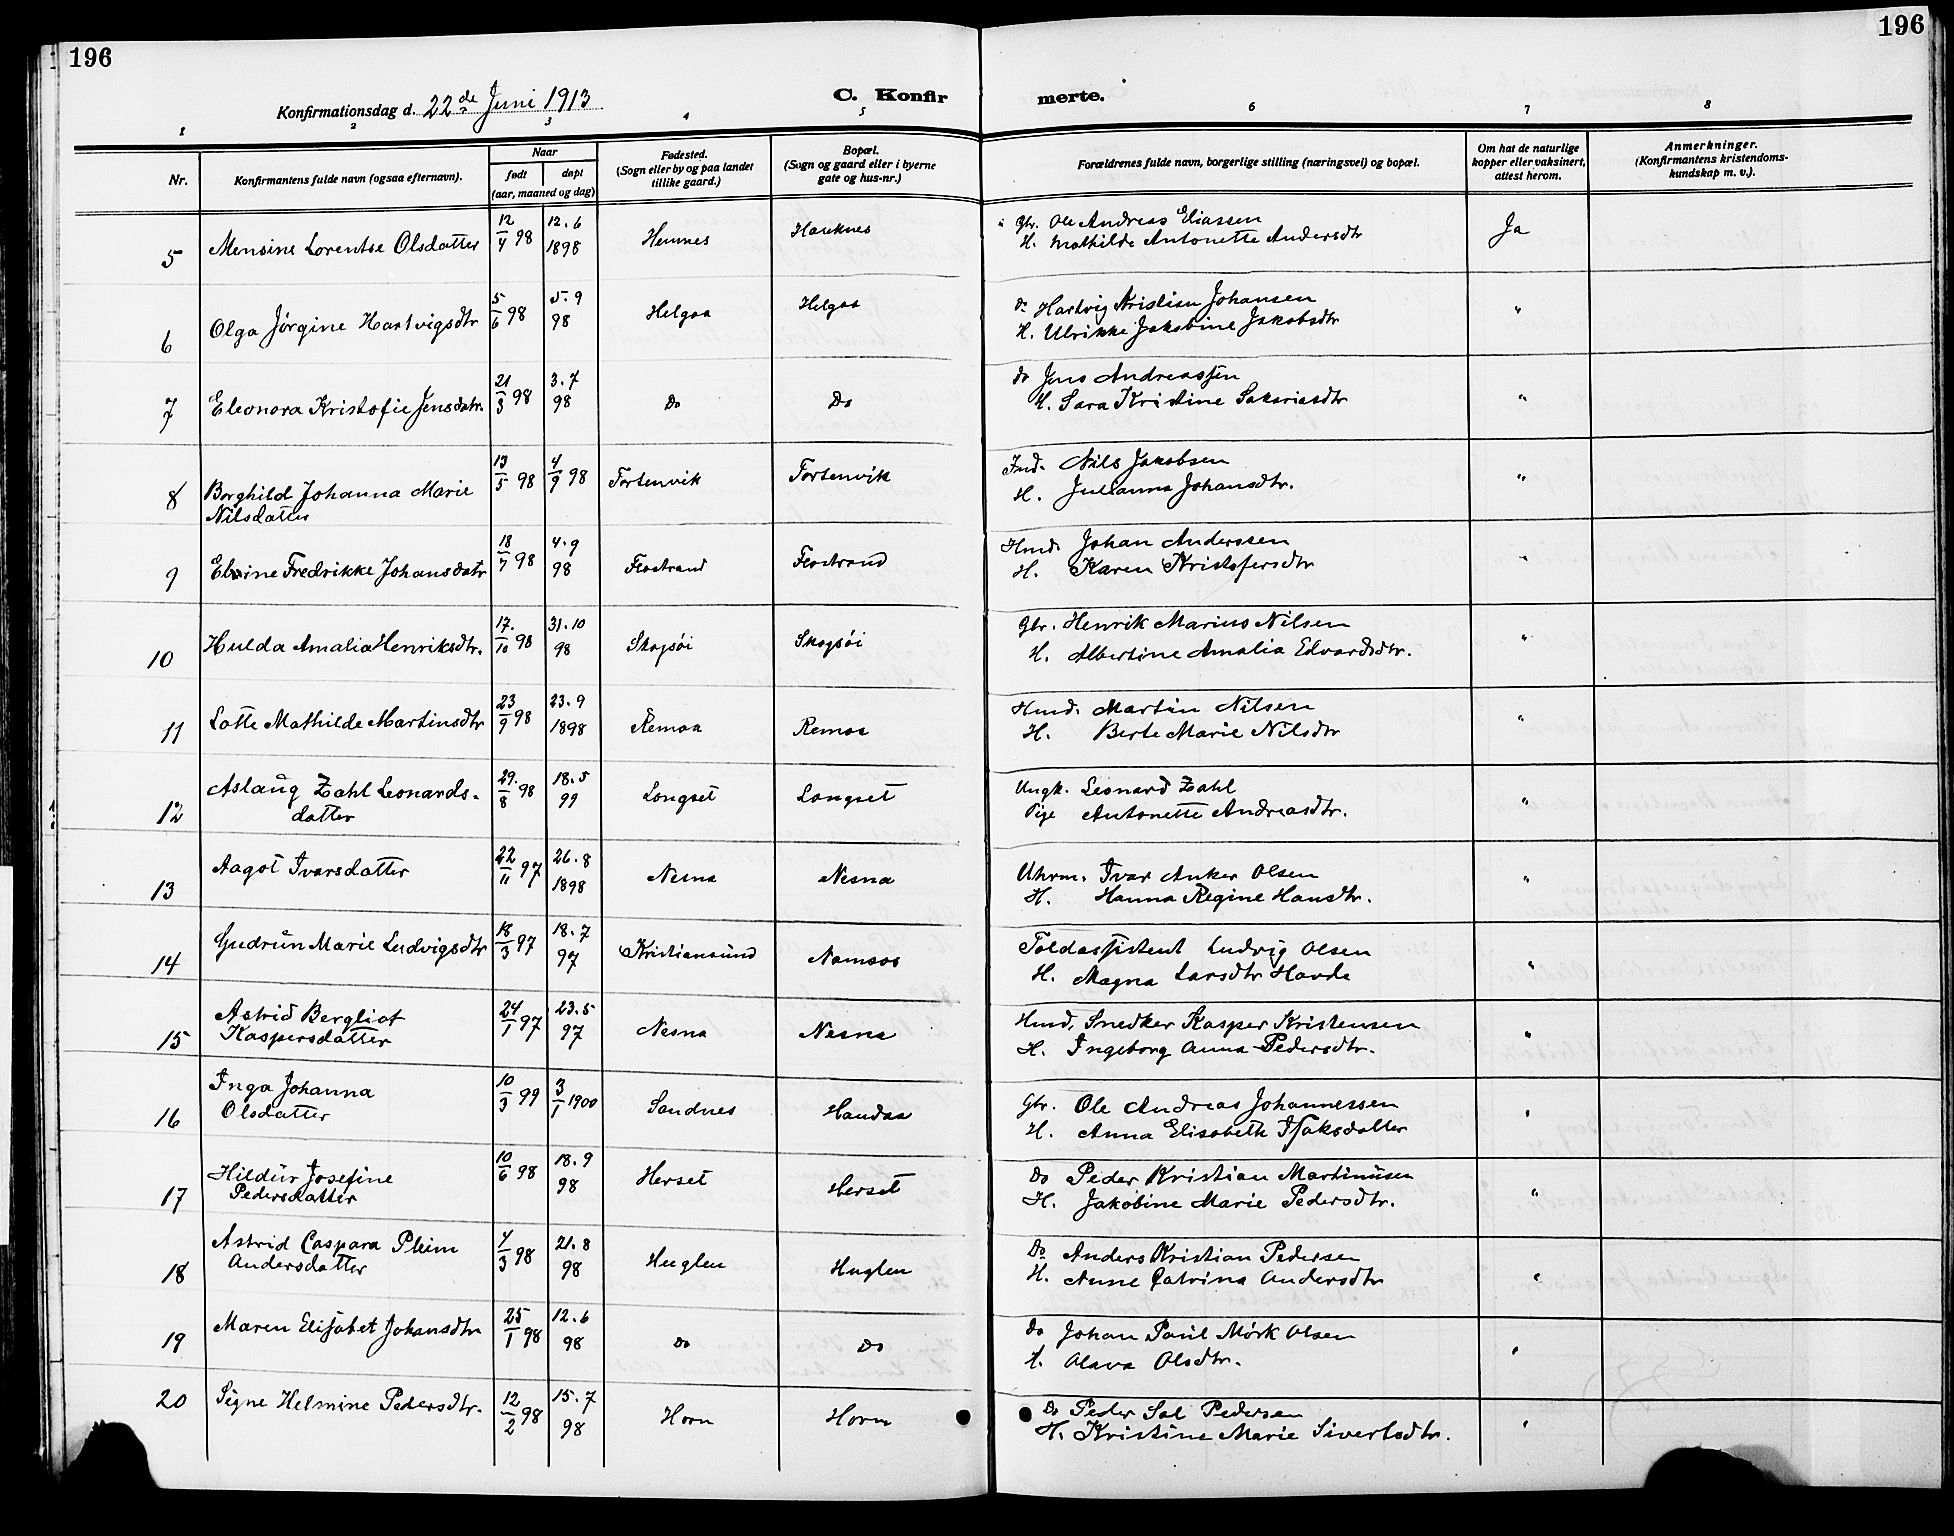 196
196
Konfirmationsdag d. 22de Juni 1913
C. Konfir
merte.
1 2 3 4 5 6 7 8
Nr.
Konfirmantens fulde navn (ogsaa efternavn).
Naar
født døpt
(aar, maaned og dag)
Fødested.
(Sogn eller by og paa landet
tillike gaard.)
Bopæl.
(Sogn og gaard eller i byerne
gate og hus-nr.)
Forældrenes fulde navn, borgerlige stilling (næringsvei) og bopæl.
Om hat de naturlige
kopper eller vaksinert,
attest herom.
Anmerkninger.
(Konfirmantens kristendoms-
kundskap m. v.).
5 Mensine Lorentse Olsdatter 12/4 98 12.6 1898 Hemnes Hauknes Gbr. Ole Andreas Eliassen Ja
H. Mathilde Antonette Andersdtr
6 Olga Jørgine Hartvigsdtr 5/6 98 5.9 98 Helgaa Helgaa Do Hartvig Kristian Johansen "
H. Ulrikke Jakobine Jakobsdtr
7 Eleonora Kristofie Jensdatr. 21/3 98 3.7 98 Do Do Do Jens Andreassen "
H. Sara Kristine Sakariasdtr
8 Borghild Johanna Marie 13/5 98 4/9 98 Tortenvik Tortenvik Ind. Nils Jakobsen "
Nilsdatter H. Julianna Johansdtr.
9 Elvine Fredrikke Johansdatr 18/7 98 4.9 98 Flostrand Flostrand Hmd. Johan Anderssen "
H. Karen Kristofersdtr
10 Hulda Amalia Henriksdtr. 17./10 98 31.10 98 Skogsøi Skogsøi Gbr. Henrik Marius Nilsen "
H. Albertine Amalia Edvardsdtr.
11 Lotte Mathilde Martinsdtr 23/9 98 23.9 1898 Remaa Remaa Hmd. Martin Nilsen "
H. Berte Marie Nilsdtr
12 Aslaug Zahl Leonards- 29./8 98 18.5 99 Longset Longset Ungk. Leonard Zahl "
datter Pige Antonette Andreasdtr.
13 Aagot Ivarsdatter 22/11 97 26.8 1898 Nesna Nesna Uhrm. Ivar Anker Olsen "
H. Hanna Regine Hansdtr.
14 Gudrun Marie Ludvigsdtr 18/3 97 18.7 97 Kristiansund Namsos Toldassistent Ludvig Olsen "
H. Magna Larsdtr Havde
15 Astrid Bergliot 24/1 97 23.5 97 Nesna Nesna Hmd, Snedker Kasper Kristensen "
Kaspersdatter H. Ingeborg Anna Pedersdtr.
16 Inga Johanna 10/3 99 3/1 1900 Sandnes Handaa Gbr. Ole Andreas Johannessen "
Olsdatter H. Anna Elisabeth Isaksdatter
17 Hildur Josefine 10/6 98 18.9 98 Herset Herset Do Peder Kristian Martinusen "
Pedersdatter H. Jakobine Marie Pedersdtr.
18 Astrid Caspara Pleim 7/3 98 21.8 98 Huglen Huglen Do Anders Kristian Pedersen "
Andersdatter H. Anne Catrina Andersdtr
19 Maren Elisabet Johansdtr 25/1 98 12.6 98 Do Do Do Johan Paul Mørk Olsen "
H. Olava Olsdtr.
20 Signe Helmine Pedersdtr. 12/2 98 15.7 98 Horn Horn Do Peder Sal Pedersen "
H. Kristine Marie Sivertsdtr.